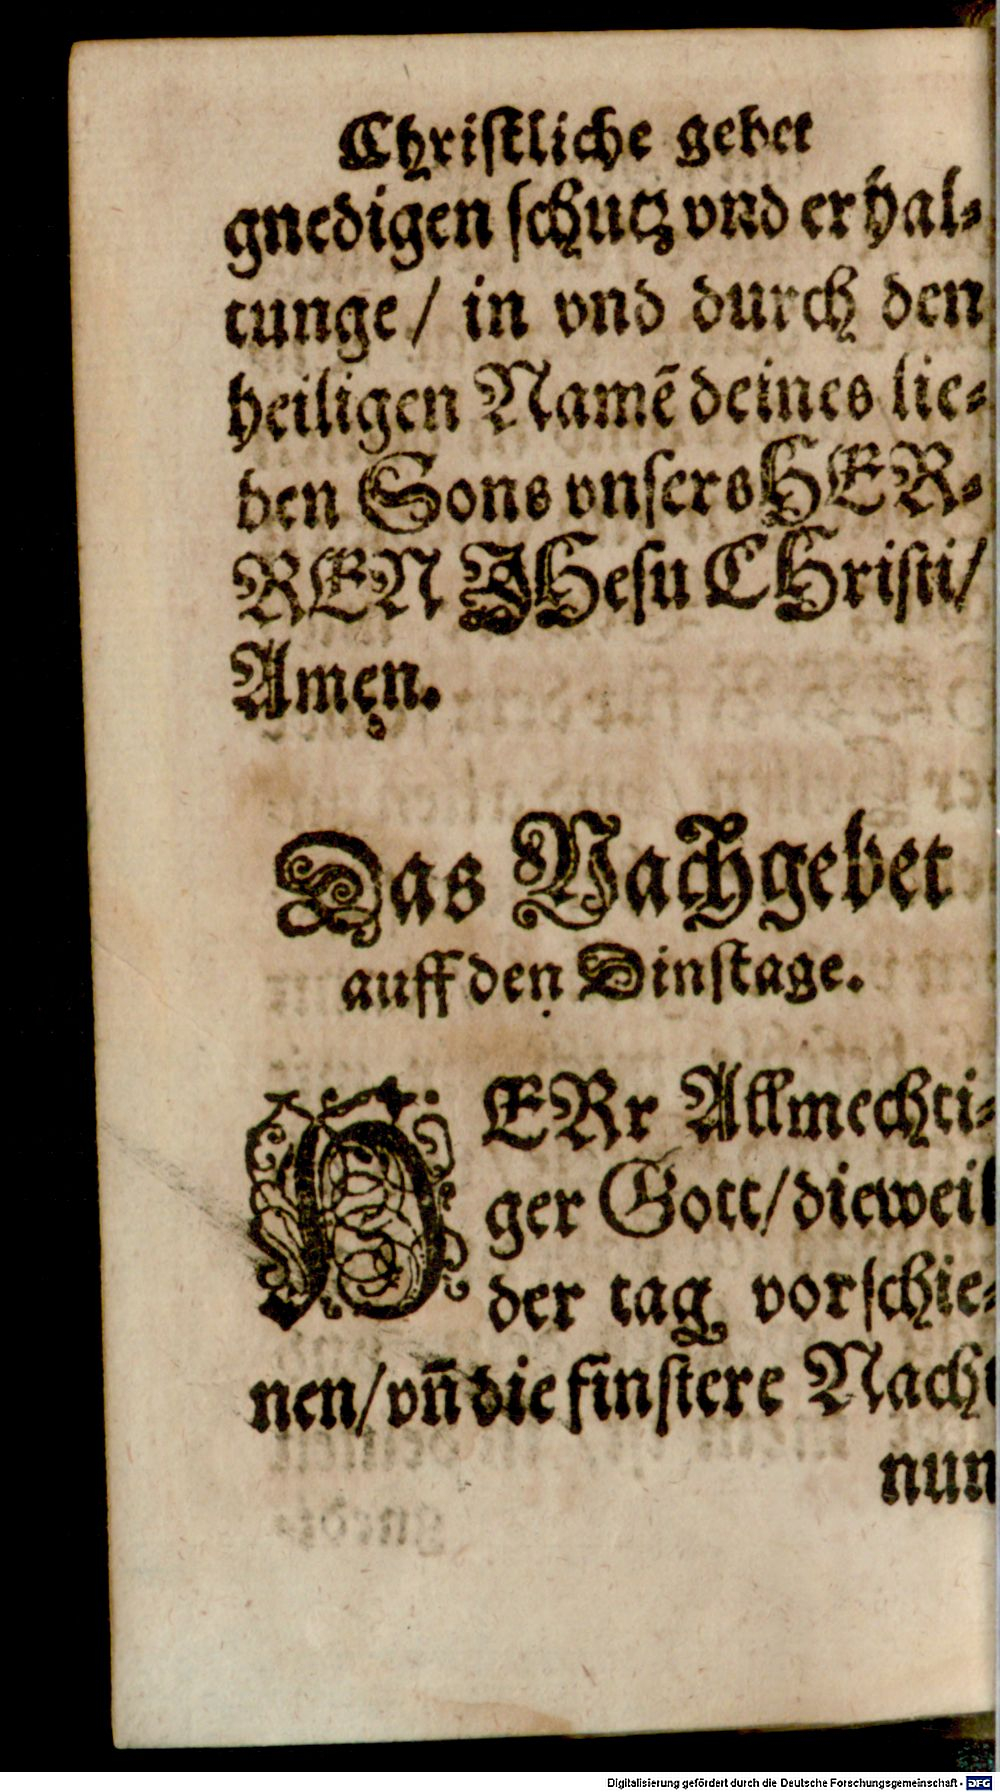 Christliche gebet
gnedigen schutz vnd erhal-
tunge / in vnd durch den
heiligen Namẽ deines lie-
ben Sons vnsers HER-
REN JHesu CHristi /
Amen.
Das Nachgebet
auff den Dinstage.
HERr Allmechti-
ger Gott / dieweil
der tag vorschie-
nen / vñ die finstere Nacht
nun
Digitalisierung gefördert durch die Deutsche Forschungsgemeinschaft - DFG